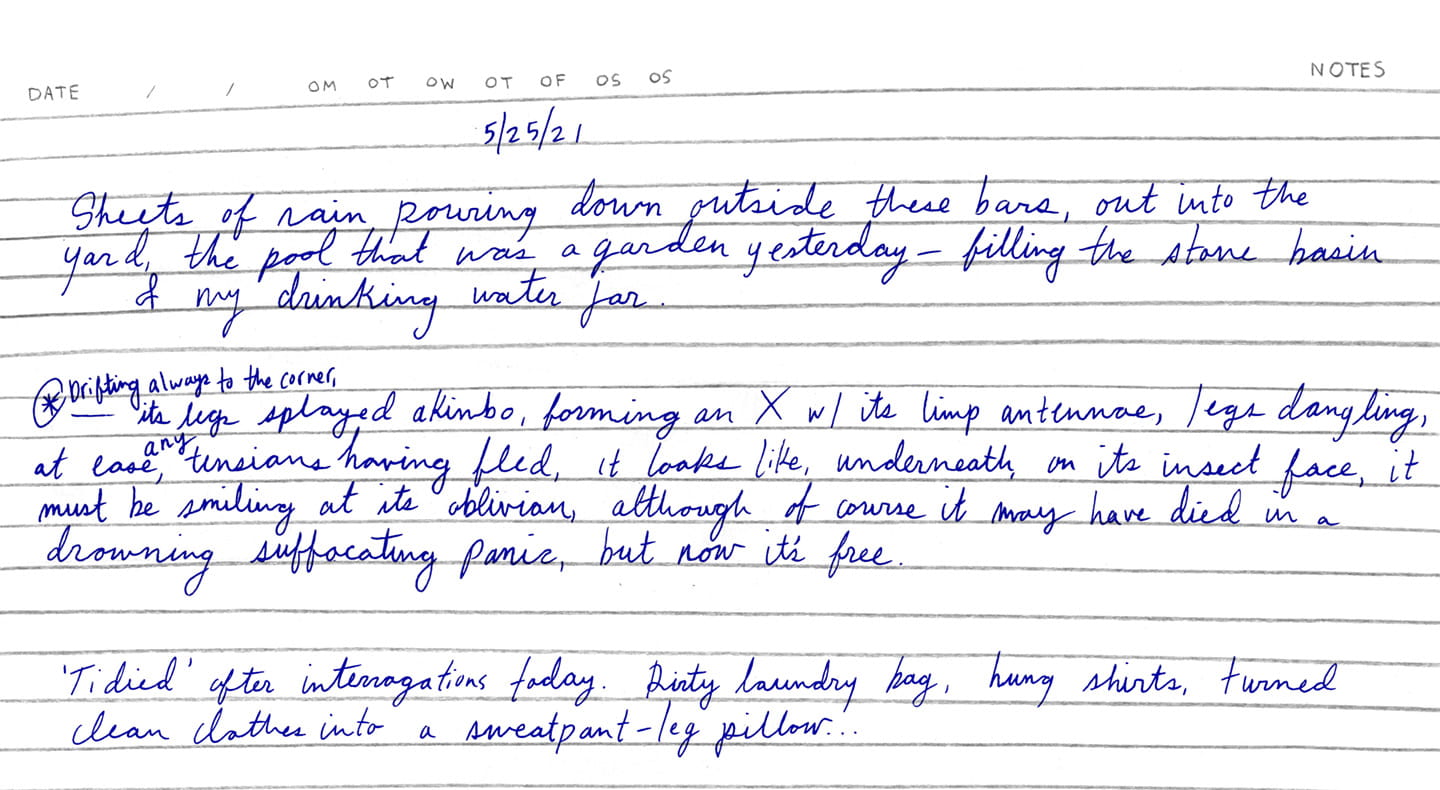 DATE / / OM OT OW OT OF OS OS NOTES
5/25/21
Sheets of rain pouring down outside these bars, out into the
yard, the pool that was a garden yesterday – filling the stone basin
& my drinking water jar.
* Drifting always to the corner,
its legs splayed akinbo, forming an X w/ its limp antennae, legs dangling,
any
at ease, tensions having fled, it looks like, underneath, on its insect face, it
must be smiling at its oblivion, although of course it may have died in a
drowning suffocating panic, but now it's free.
'Tidied' after interrogations today. Dirty laundry bag, hung shirts, turned
clean clothes into a sweatpant-leg pillow...